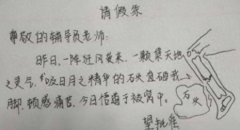 请假条
尊敬的辅导员老师:
昨日,一阵妖风袭来,一颗聚天地
之灵气,吸日月之精华的石头直砸我
脚,顿感痛苦,今日信蹋于被窝中。
望批准
石头